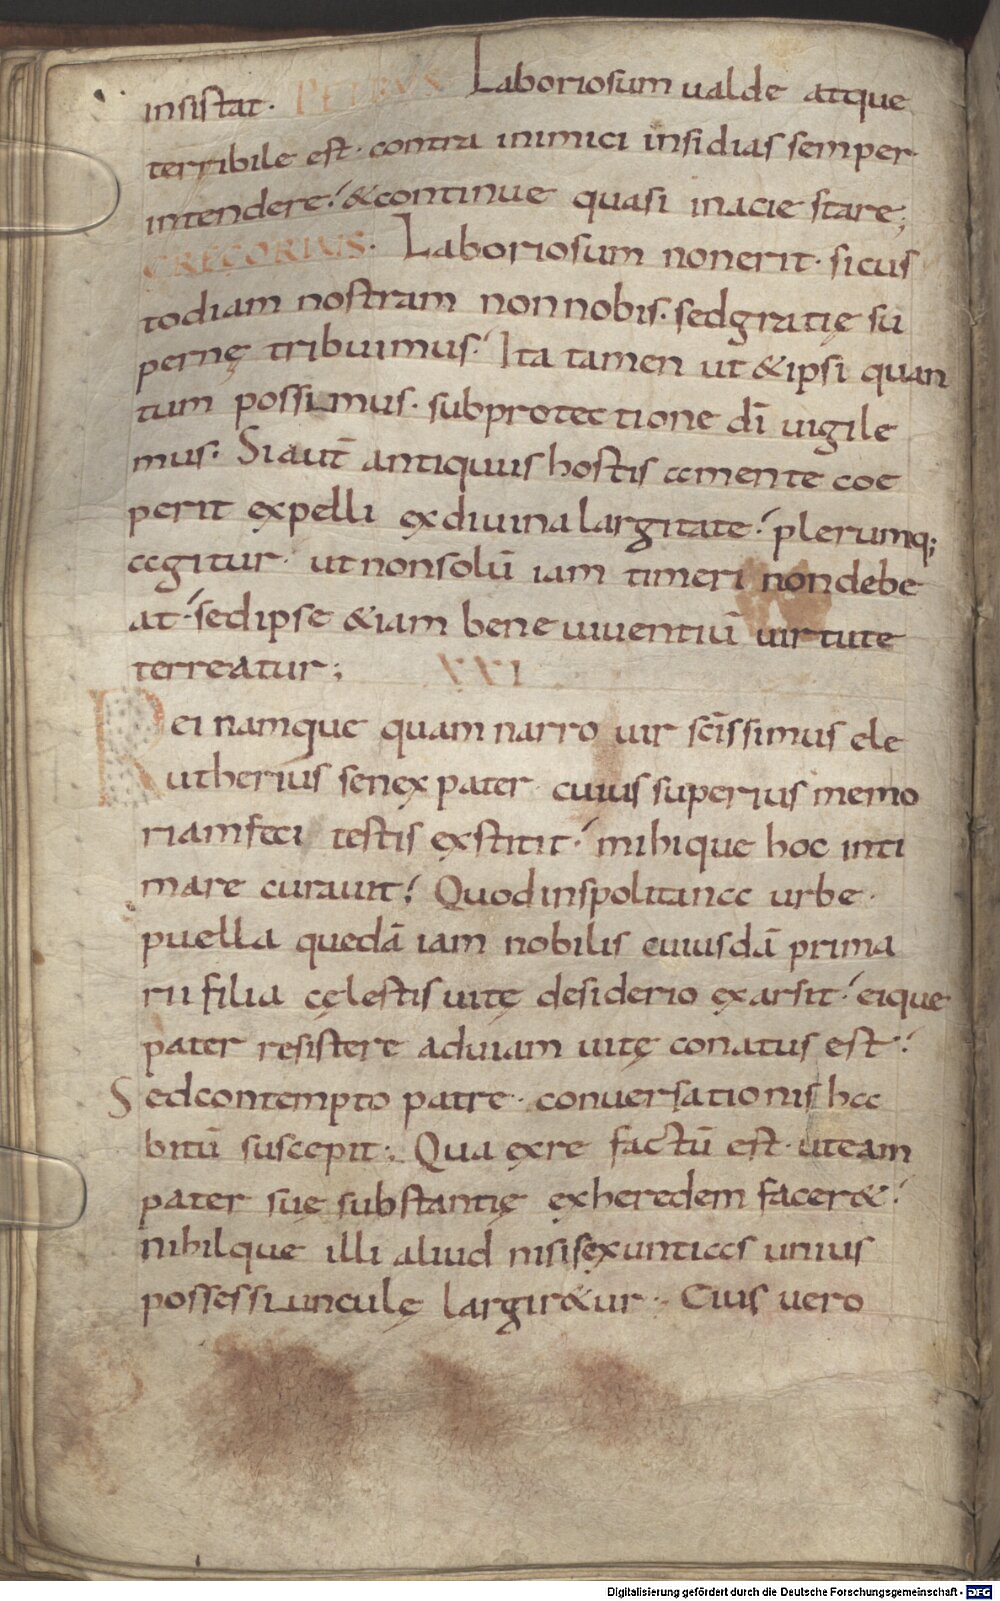 insistat. PETRUS Laboriosum ualde atque
terribile est. contra inimici insidias semper
intendere. &continue quasi inacie stare;
GREGORIUS. Laboriosum nonerit. sicus
todiam nostram nonnobis. sedgratię su
pernę tribuimus. Ita tamen ut &ipsi quan
tum possumus. subprotectione dī uigile
mus. Siaut̄ antiquus hostis amente coe
perit expelli exdiuinalargitate. plerumq;
agitur. utnonsolū iam timeri nondebe
at. sedipse &iam beneuiuentiū uirtute
terreatur; XXI
Rei namque quam narro uir sc̄issimus ele
utherius senex pater cuius superius memo
riamfeci testis exstitit. mihique hoc inti
mare curauit. Quodinspolitana urbe.
puella quedā iam nobilis cuiusdā prima
rii filia cęlestis uitę desiderio exarsit. eique
pater resistere aduiam uitę conatus est.
Sedcontempto patre. conuersationis ha
bitū suscepit. Qua exre factū est. uteam
pater suę substantię exheredem facer&.
nihilque illi aliud nisisexuntias unius
possessiunculę largir&ur. Cuius uero
Digitalisierung gefördert durch die Deutsche Forschungsgemeinschaft - DFG